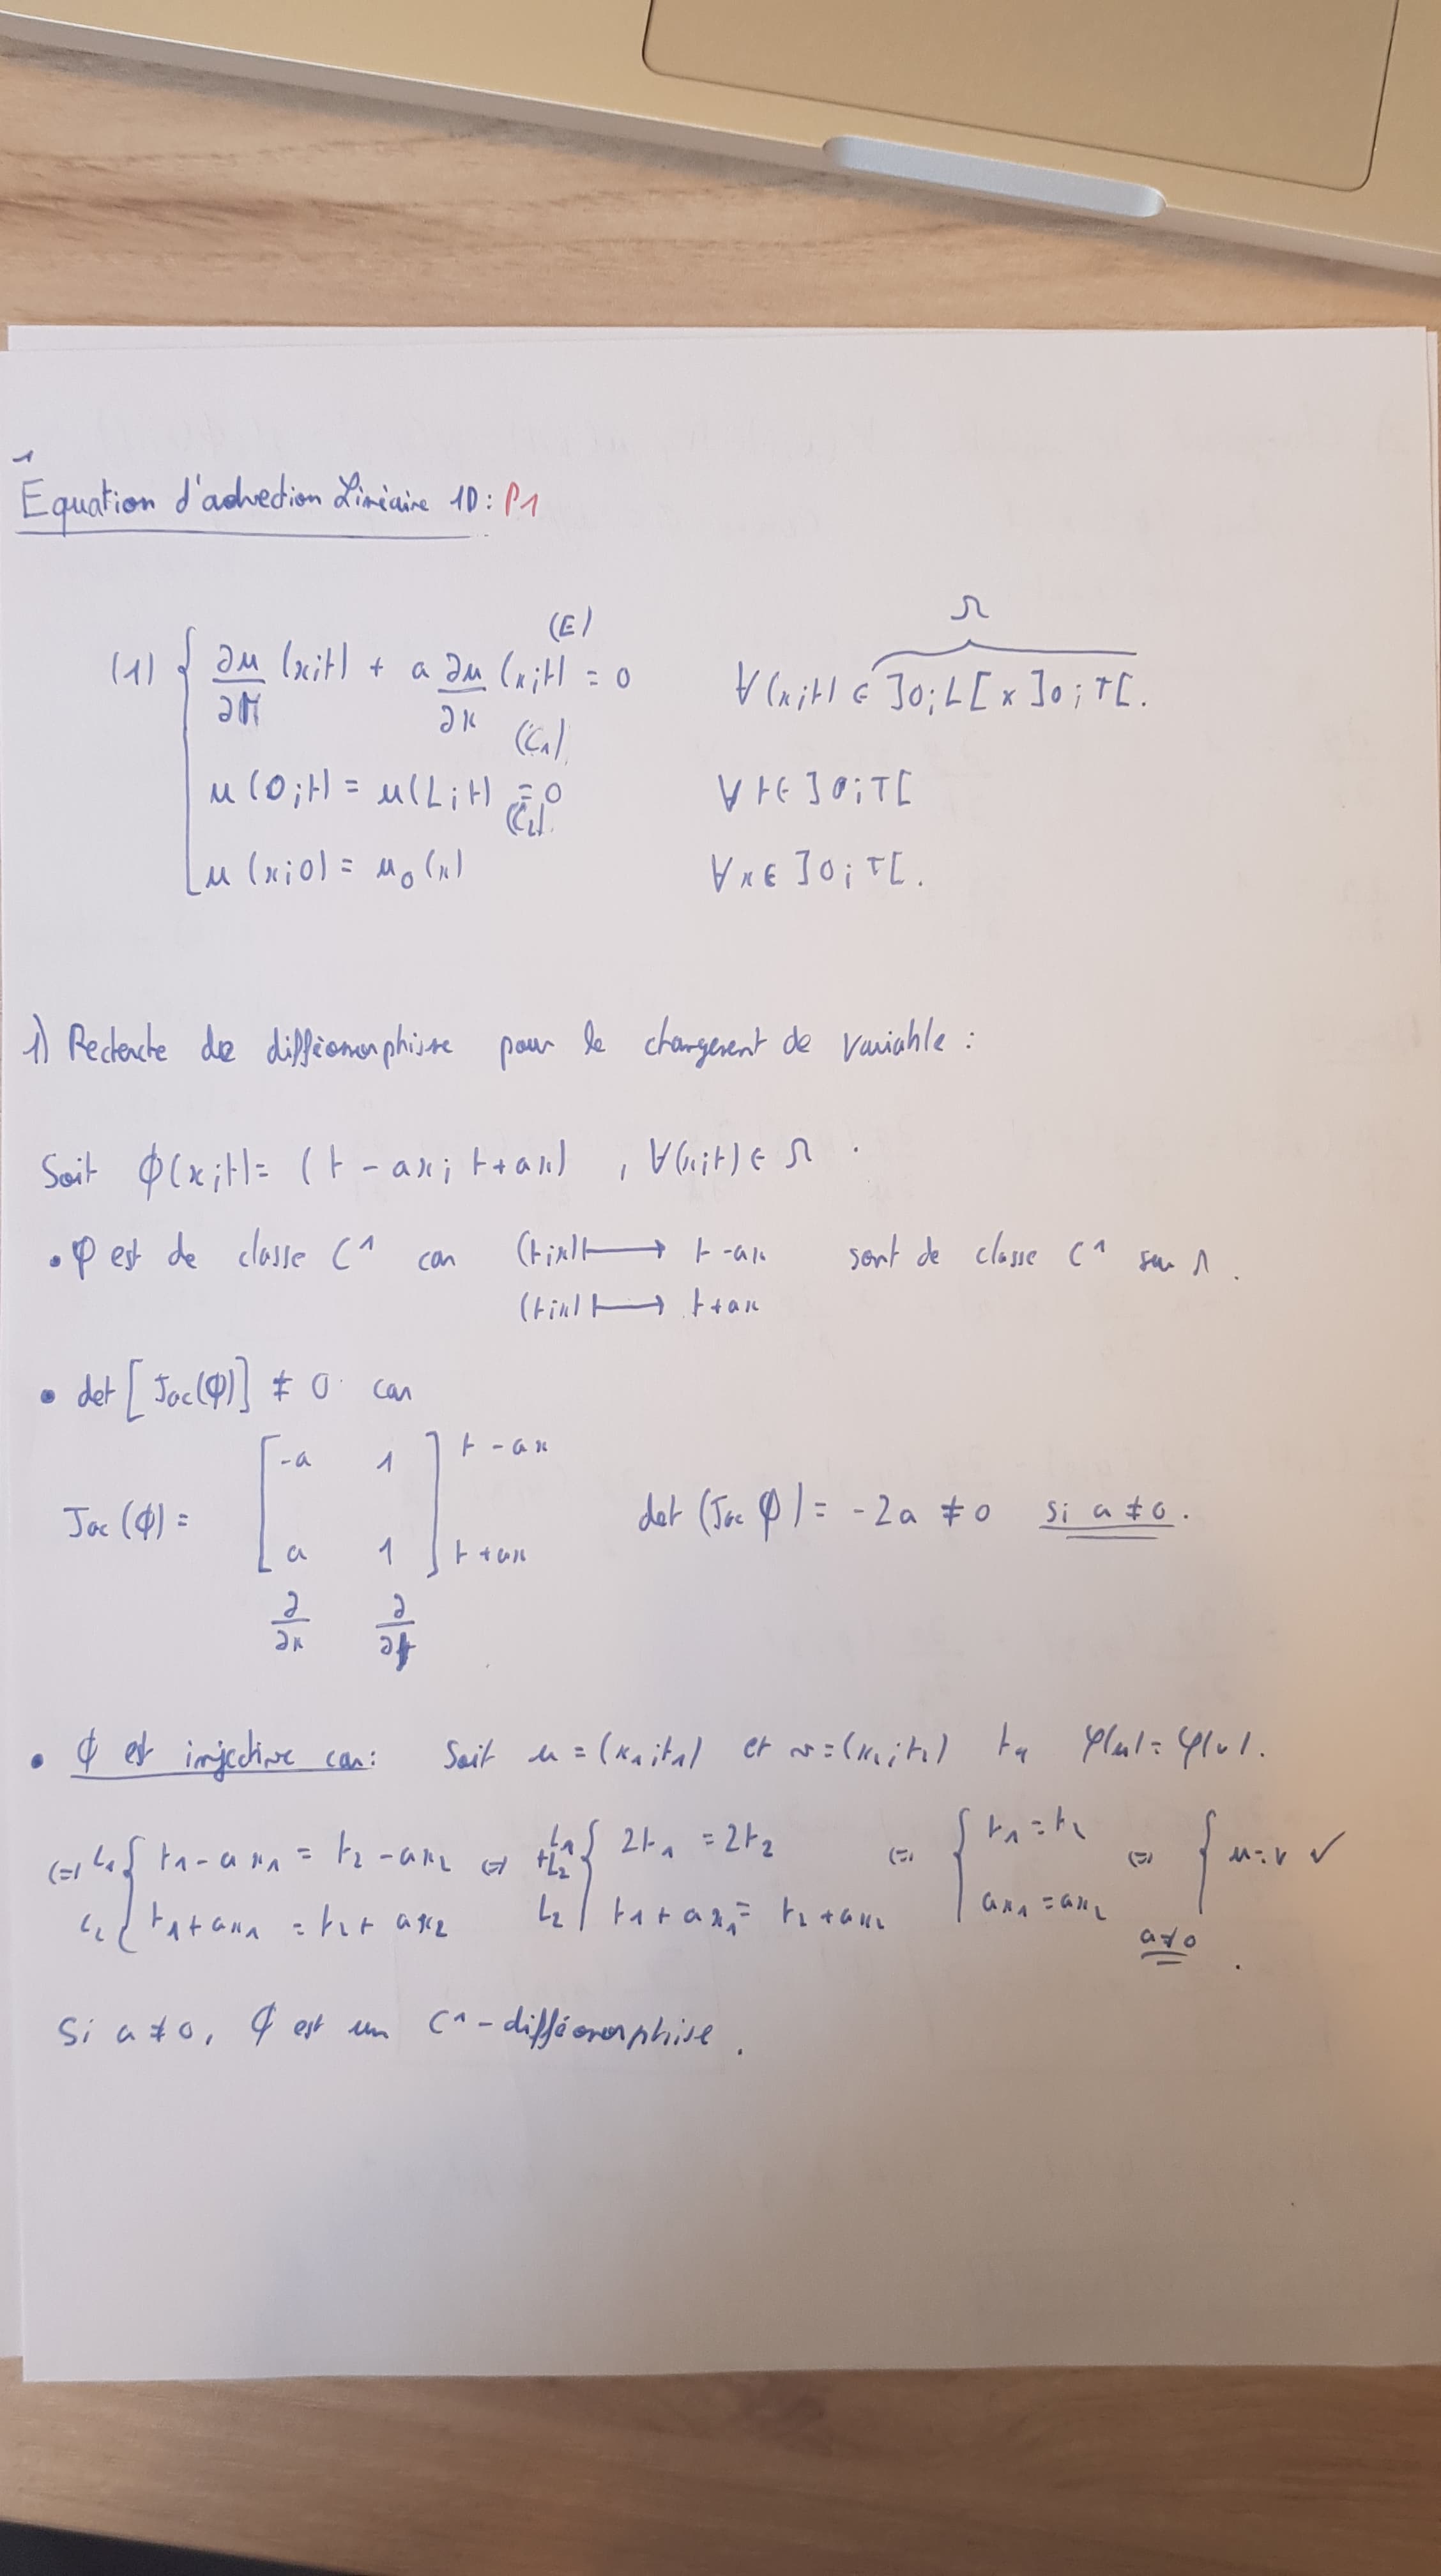 1
Equation d'advection Linéaire 1D : P1
(E)
Ω
(1) { ∂u/∂t (x;t) + a ∂u/∂x (x;t) = 0 ∀(x;t) ∈ ]0;L[ x ]0;T[.
(C1)
u(0;t) = u(L;t) = 0 ∀t∈ ]0;T[
(C2)
u(x;0) = u0(x) ∀x∈ ]0;T[.
1) Recherche de difféomorphisme pour le changement de variable :
Soit ϕ(x;t) = (t - ax; t + ax) , ∀(x;t) ∈ Ω .
• φ est de classe C^1 car (t;x) ⟼ t - ax sont de classe C^1 sur Ω .
(t;x) ⟼ t + ax
• det [Jac(ϕ)] ≠ 0 car
-a 1 t - ax
Jac(ϕ) = det (Jac ϕ) = -2a ≠ 0 si a ≠ 0.
a 1 t + ax
∂/∂x ∂/∂t
• ϕ est injective car : Soit u = (x1;t1) et v = (x2;t2) tq φ(u) = φ(v).
(=) L1 { t1 - ax1 = t2 - ax2 (=) L1+L2 { 2t1 = 2t2 (=) { t1 = t2 (=) { u = v ✓
L2 t1 + ax1 = t2 + ax2 L2 t1 + ax1 = t2 + ax2 ax1 = ax2
a≠0 .
Si a ≠ 0, ϕ est un C^1-difféomorphisme .